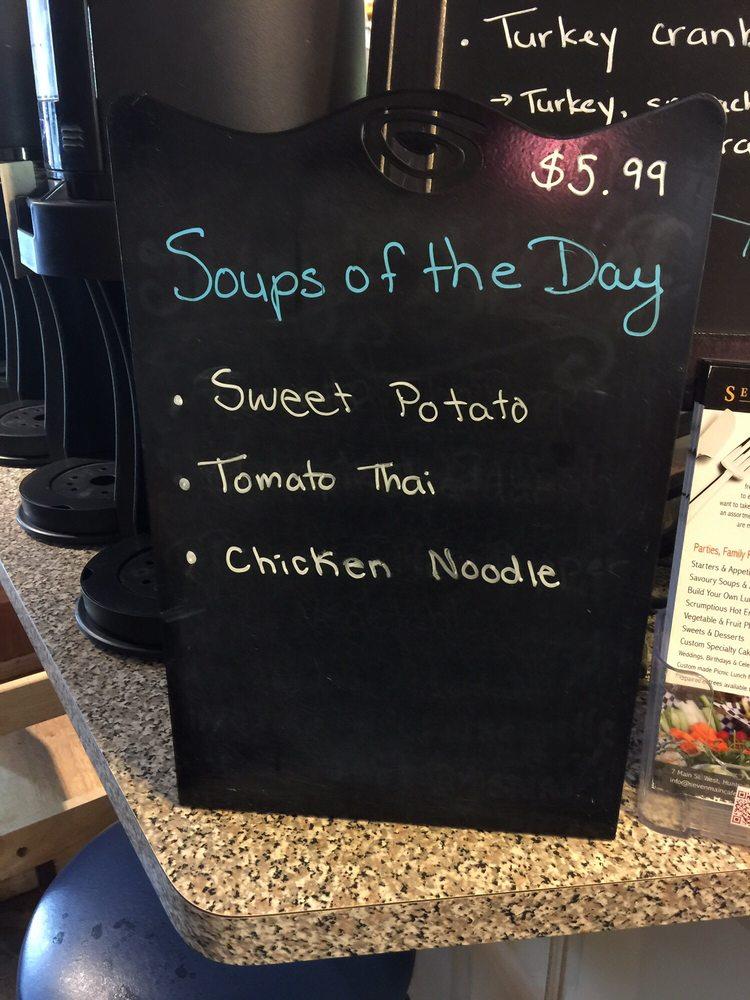 • Turkey
→ Turkey,
$5.99
Soups of the Day
• Sweet Potato
• Tomato Thai
• Chicken Noodle
want to take
an assortme
are n
Parties, Family
Starters & Appeti
Savoury Soups &
Build Your Own Lu
Scrumptious Hot E
Vegetable & Fruit Pl
Sweets & Desserts
Custom Specialty Cak
Weddings, Birthdays & Cele
Custom made Picnic Lunch
entrees available
7 Main St. West, Hun
info@sevenmaincafe